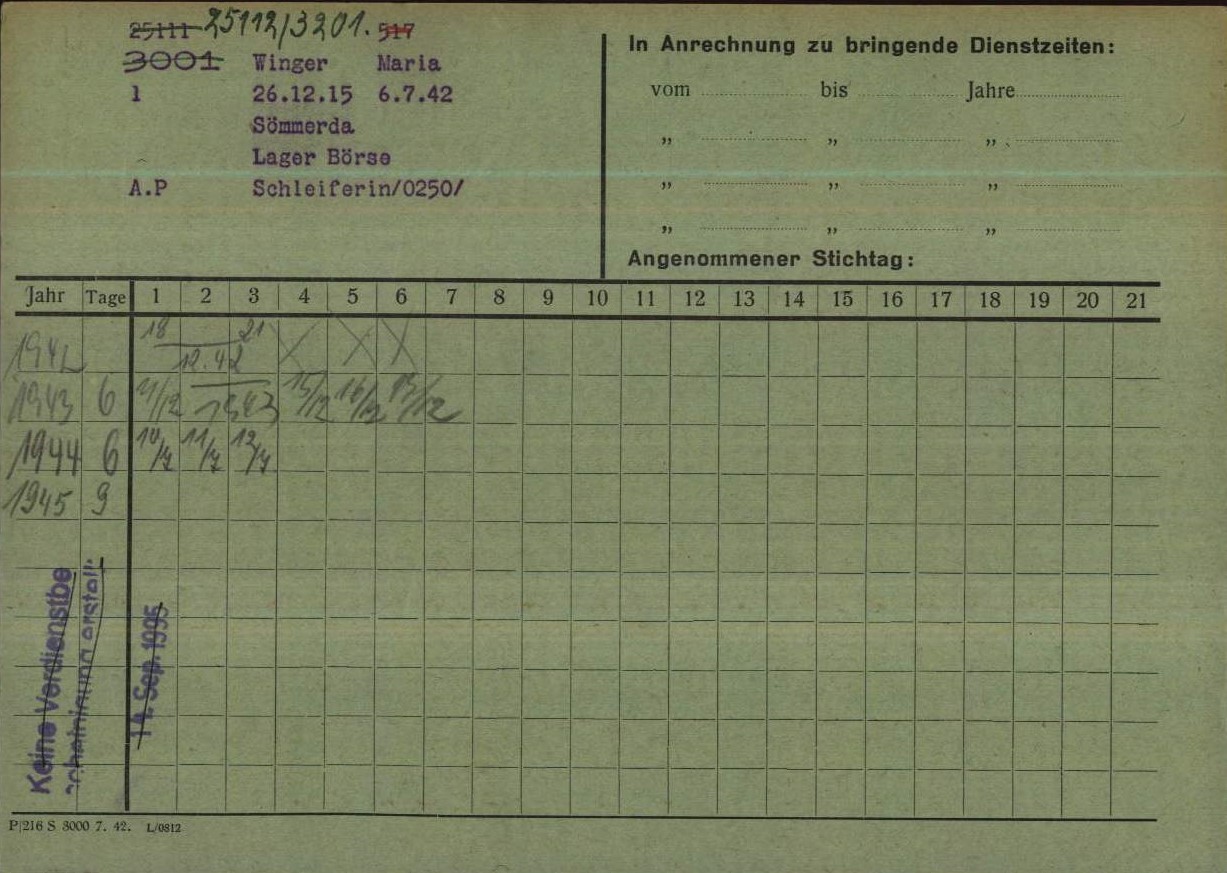 25111 25112/3201. 517
3001 Winger Maria
1 26.12.15 6.7.42
Sömmerda
Lager Börse
A.P Schleiferin/0250/
In Anrechnung zu bringende Dienstzeiten:
vom bis Jahre
„ „ „
„ „ „
„ „ „
Angenommener Stichtag:
Jahr Tage 1 2 3 4 5 6 7 8 9 10 11 12 13 14 15 16 17 18 19 20 21
1942 18 21
12.42
1943 6 11/12 15/12 16/12 17/12
1944 6 10/7 11/7 12/7
1945 9
Keine Verdienstbe
scheinigung erstellt
14. Sep. 1995
P/216 S 3000 7. 42. L/0812